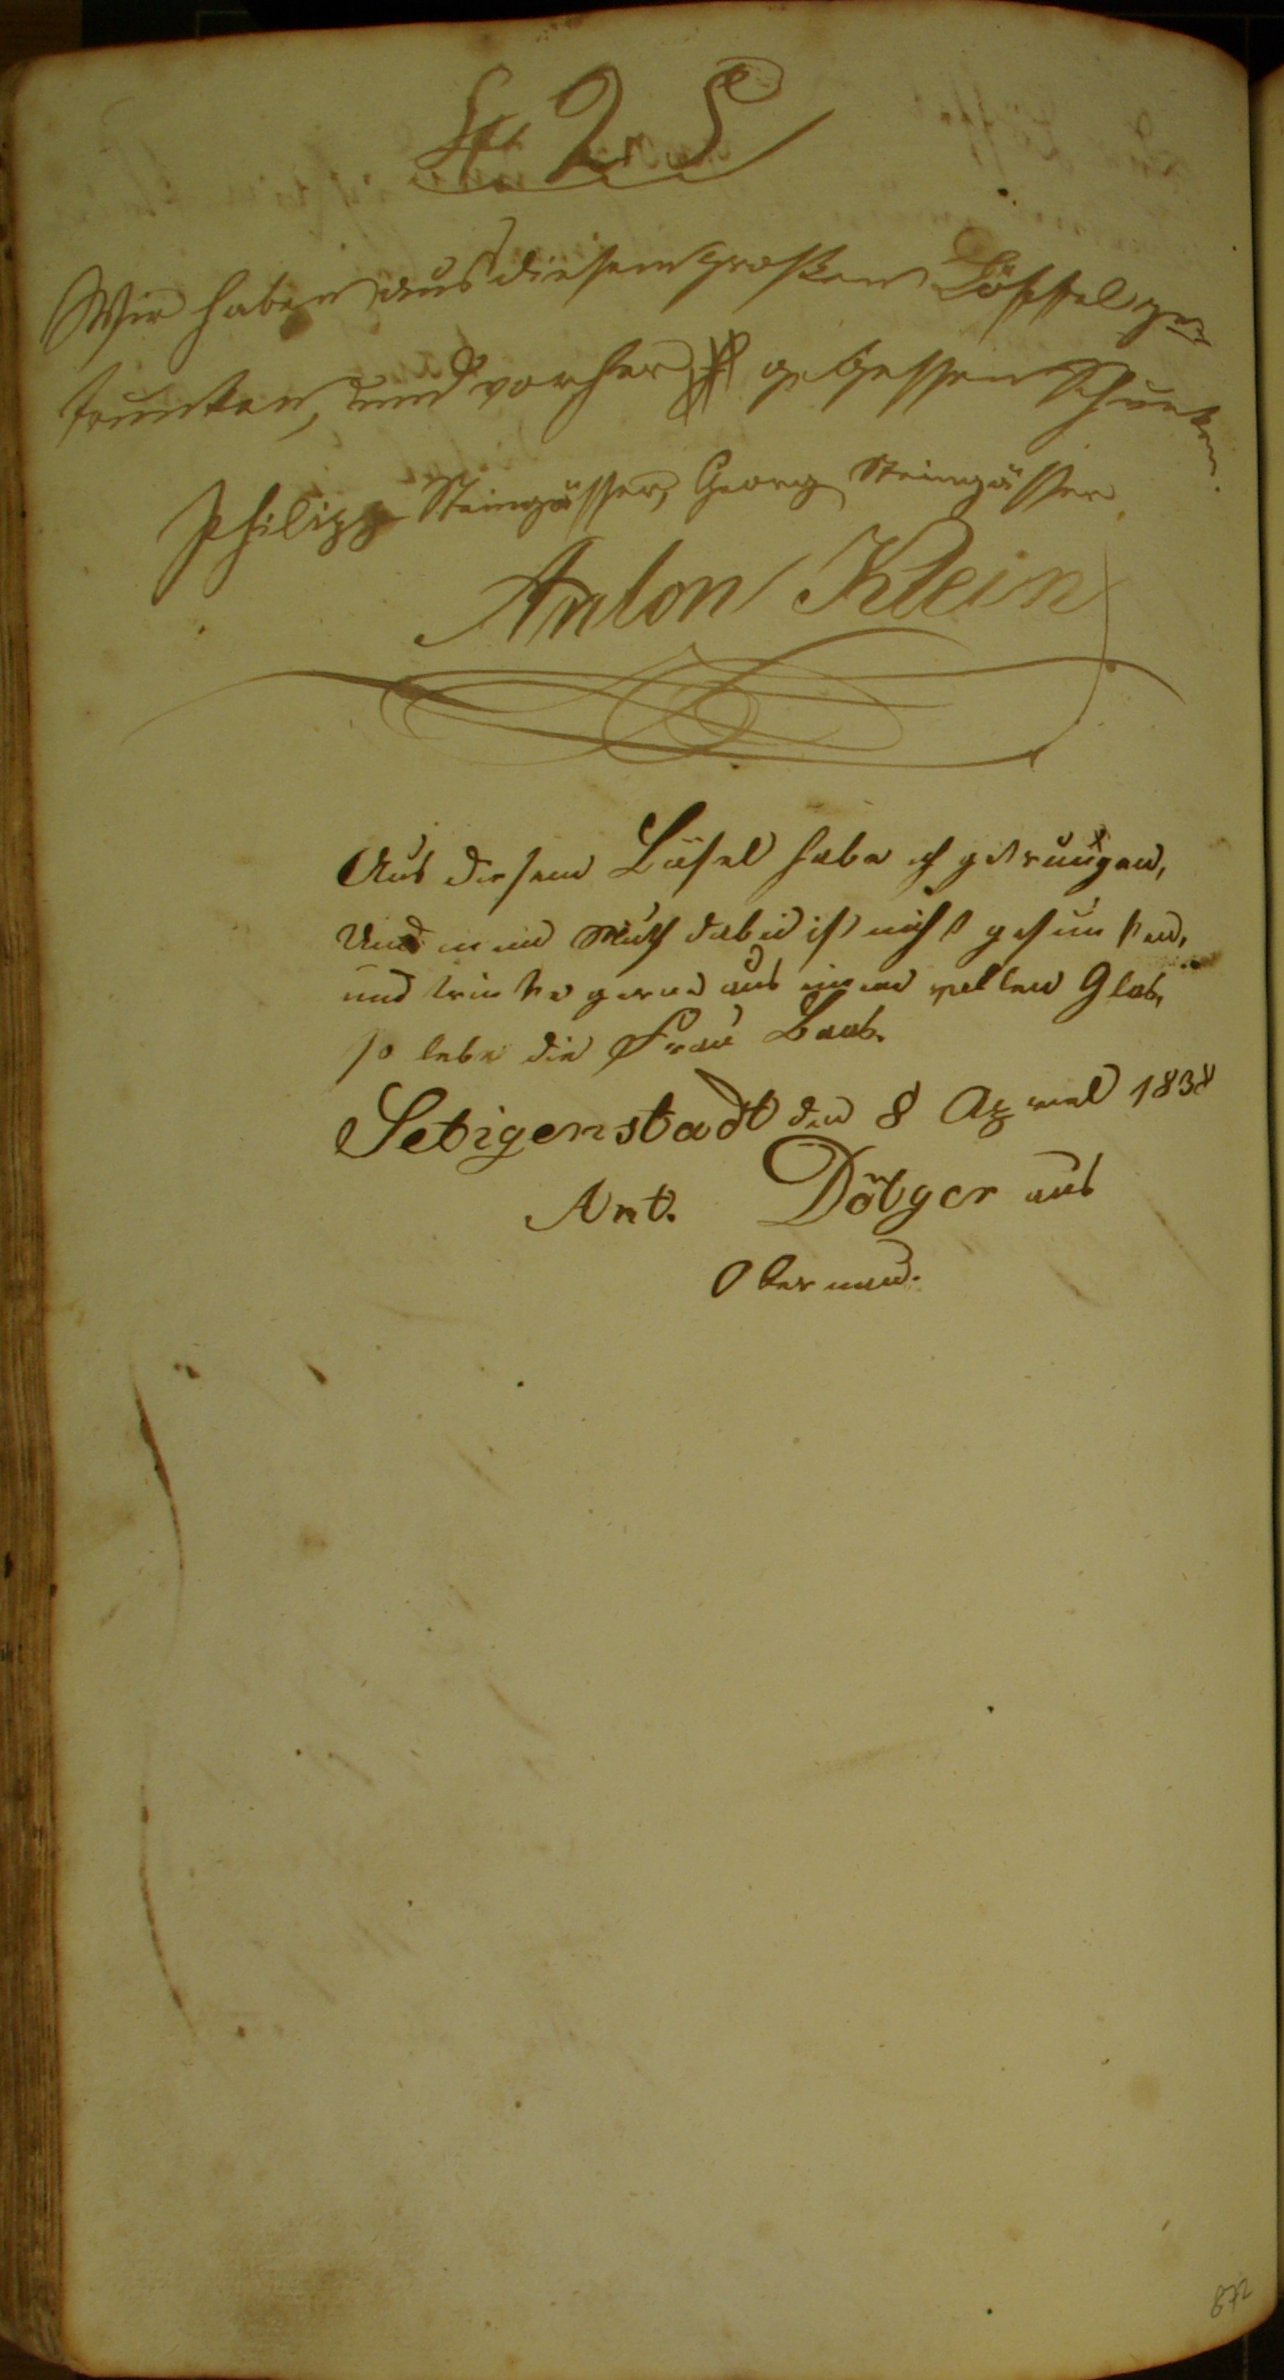 25
Wir haben aus diesem großen Löffel ge-
trunken, und vorher gegessen Schunken.
Philipp Steingässer, Georg Steingässer
Anton Klein
Aus diesem Löfel habe ich getrungen,
Und mein Muth dabei ist nicht gesunken,
und trinke gerne aus einem vollen Glas,
so lebe die Frau Baas.
Seligenstadt den 8 Apriel 1838
Ant. Dölger aus
Obernau.
872